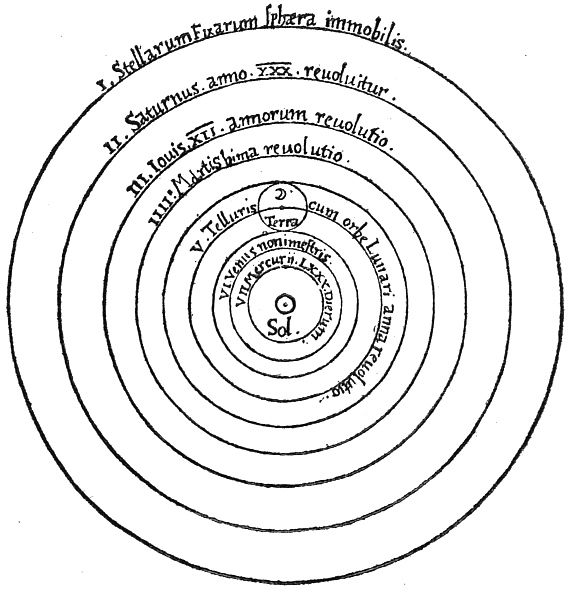 I. Stellarum Fixarum sphæra immobilis.
II. Saturnus. anno. XXX. reuoluitur.
III. Iouis. XII. annorum reuolutio.
IIII. Martis bima reuolutio.
V. Telluris cum orbe Lunari annua reuolutio.
Terra
VI. Venus nonimestris.
VII Mercurii. LXXX. Dierum.
Sol.